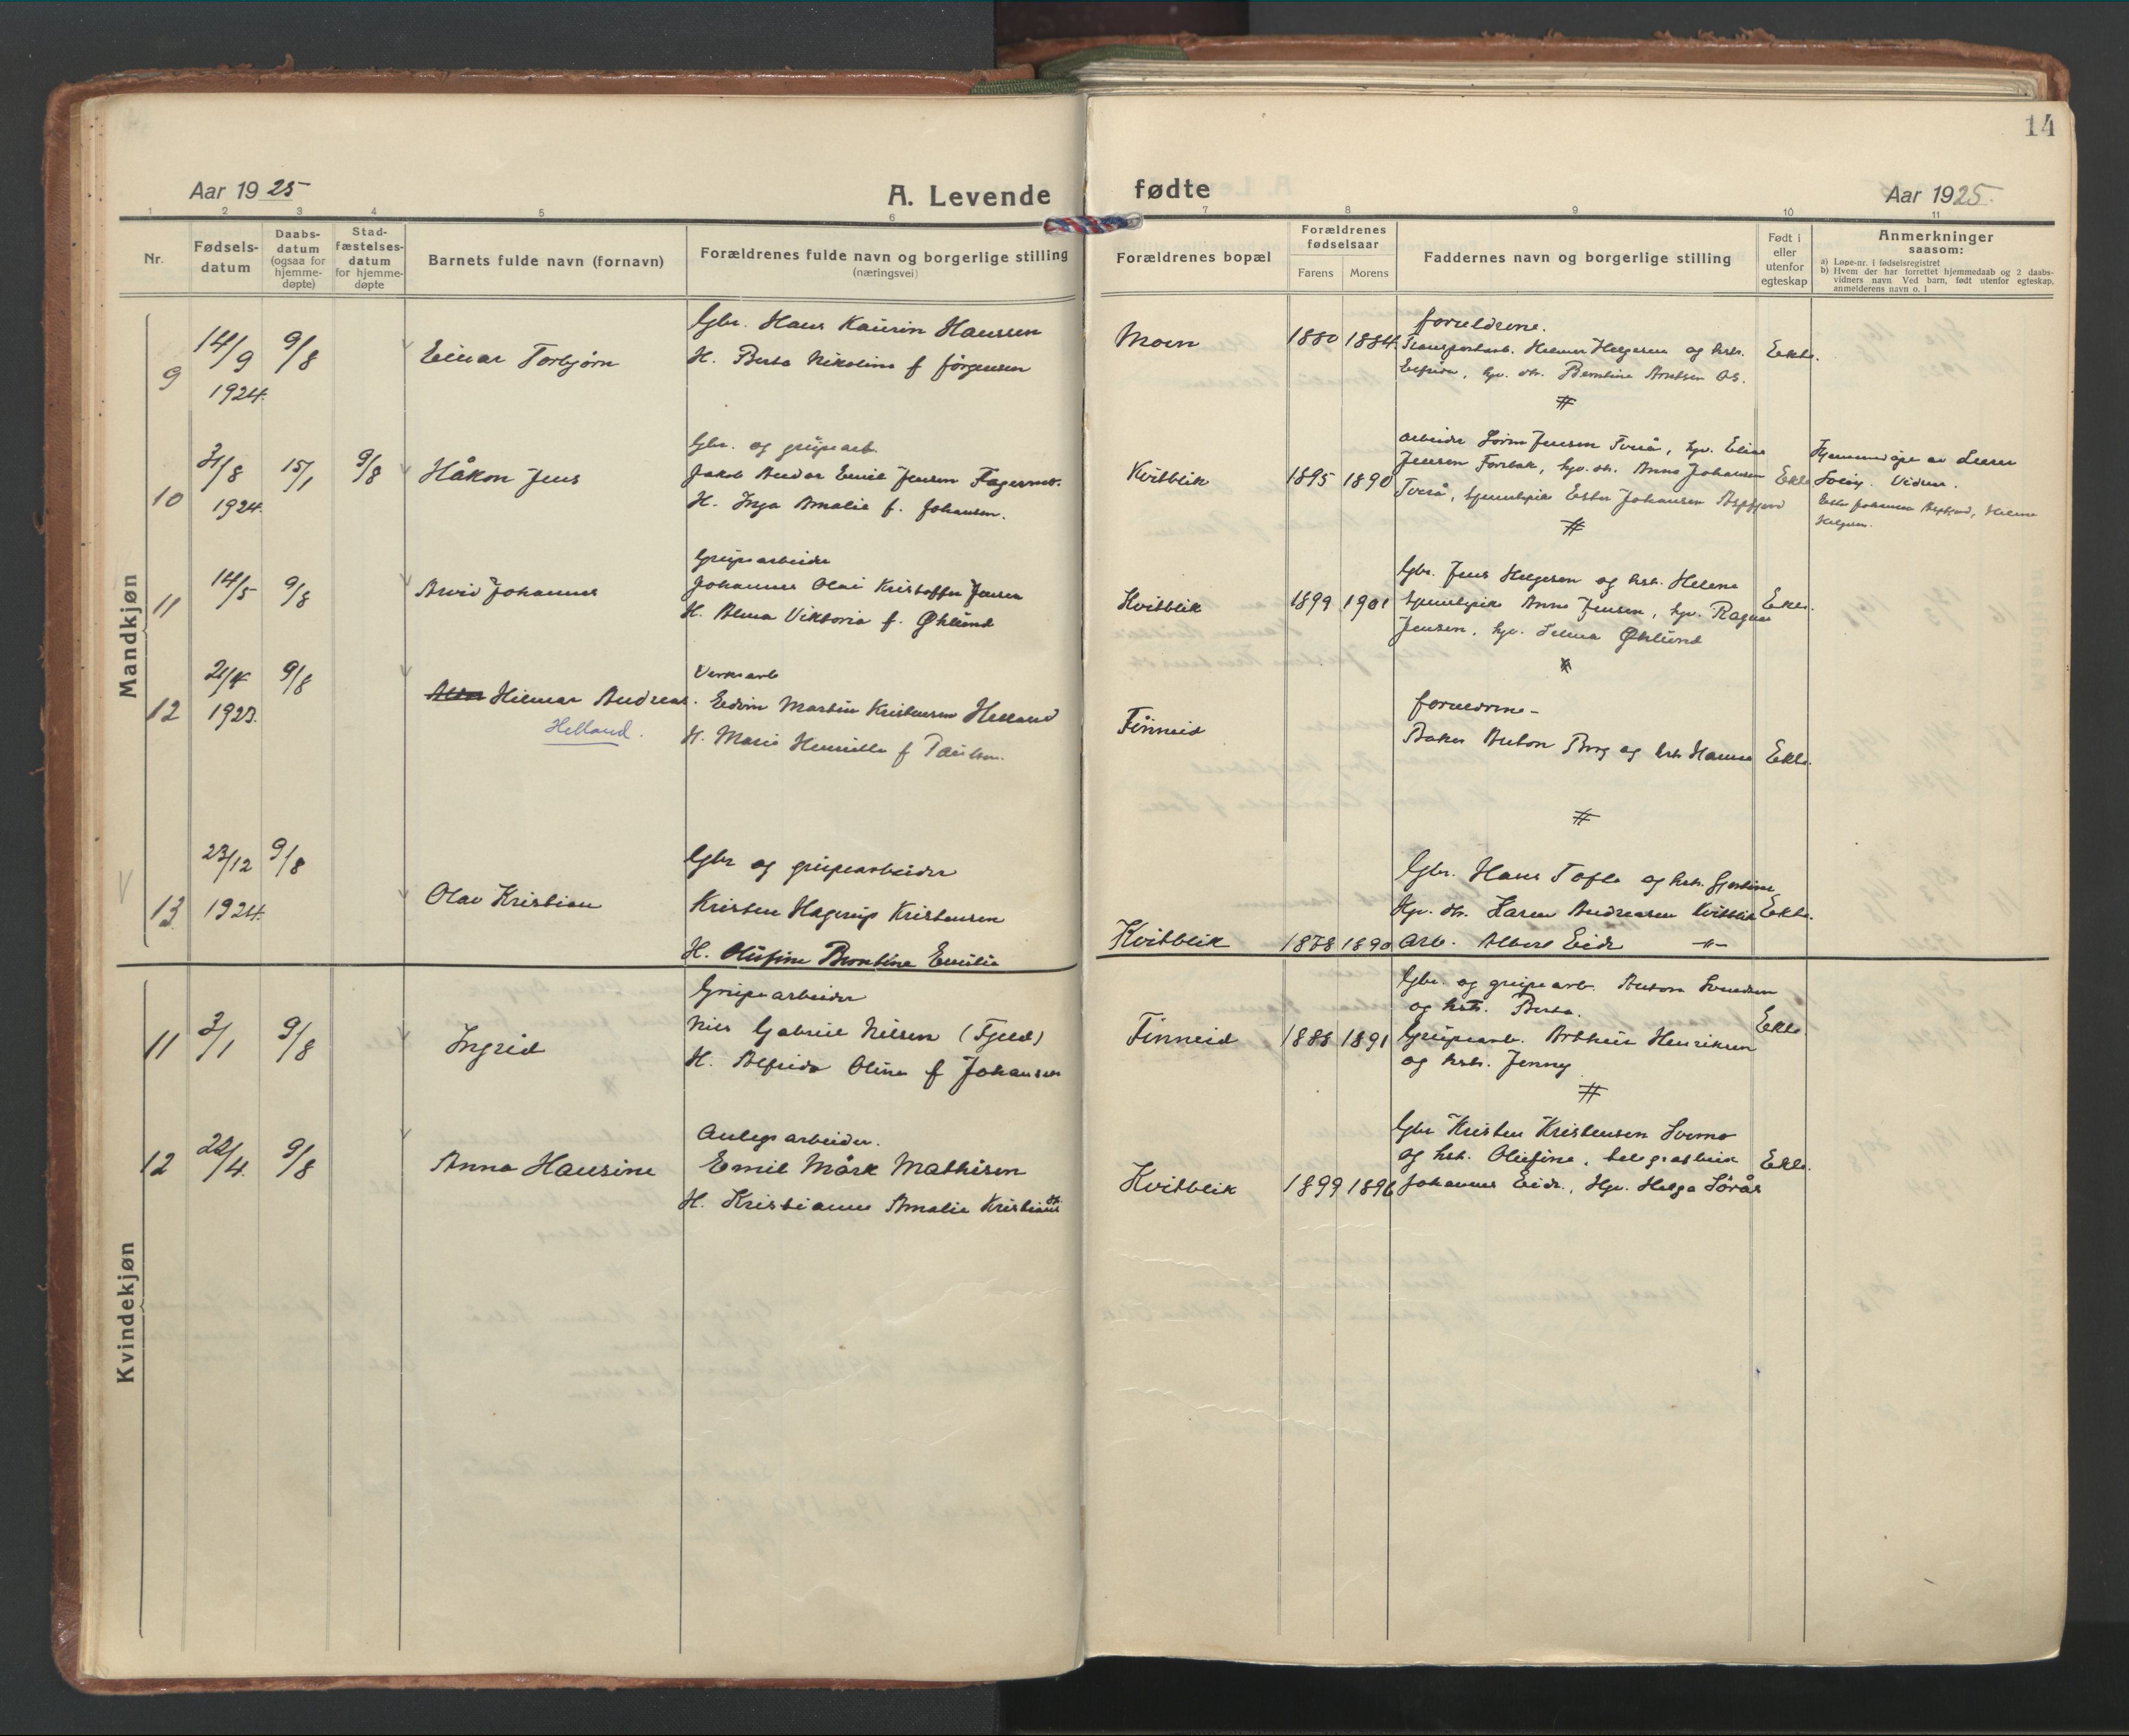 14
Aar 1925
A. Levende
fødte
Aar 1925.
1 2 3 4 5 6 7 8 9 10 11
Nr.
Fødsels-
datum
Daabs-
datum
(ogsaa for
hjemme-
døpte)
Stad-
fæstelses-
datum
for hjemme-
døpte
Barnets fulde navn (fornavn)
Forældrenes fulde navn og borgerlige stilling
(næringsvei)
Forældrenes bopæl
Forældrenes
fødselsaar
Farens Morens
Faddernes navn og borgerlige stilling
Født i
eller
utenfor
egteskap
Anmerkninger
saasom:
a) Løpe-nr. i fødselsregistret
b) Hvem der har forrettet hjemmedaab og 2 daabs-
vidners navn Ved barn, født utenfor egteskap,
anmelderens navn o. l
Mandkjøn
9
14/9
1924.
9/8
Einar Torbjørn
Gbr. Hans Kaurin Hanssen
H. Berta Nikoline f Jørgensen
Moen
1880 1884.
foreldrene.
Transportarb. Helmer Helgesen og hstr.
Elfrida, hgv. dtr. Berntine Arntsen Os.
Ekte.
#
10
31/8
1924.
15/1
9/8
Håkon Jens
Gbr. og grubearb.
Jakob Andor Emil Jensen Fagermo.
H. Inga Amalie f. Johansen.
Kvitblik
1895 1890
arbeider Søren Jensen Tverå, hgv. Elias
Jensen Forsbak, hgv. dtr. Anna Johansen
Tverå, tjenestepike Ester Johansen Aspfjord
Ekte
Hjemmedøpt av Lærer
Vidner.
Ester Johansen Aspfjord, Helene
Helgesen.
#
11
14/5
9/8
Arvid Johannes
Grubearbeider
Johannes Olai Kristoffer Jensen
H. Alma Viktoria f. Øhlund
Kvitblik
1899 1901
Gbr. Jens Helgesen og hstr. Helene
tjenestepike Anna Jensen, hgv. Ragnar
Jensen, hgv. Selma Øhlund
Ekte.
#
12
21/4
1923.
9/8
Hilmar Andreas.
Helland.
Verksarb
Edvin Martin Kristensen Helland
H. Marie Henriette f Paulsen.
Finneid
foreldrene -
Baker Anton Borg og hstr Hanna
Ekte.
#
13
23/12
1924.
9/8
Olav Kristian
Gbr og grubearbeider
Kristen Hagerup Kristensen
H. Olufine Berntine Emilie
Kvitblik
1878 1890
Gbr. Hans Tofte og hstr. Gjertine
Hgv. dtr. Karen Andreasen Kvitblik
Arb. Albert Eide -"-
Ekte.
Kvindekjøn
11
3/1
9/8
Ingrid
Grubearbeider
Nils Gabriel Nilsen (Fjeld)
H. Alfrida Oline f Johansen
Finneid
1888 1891
Gbr. og grubearb. Anton Svendsen
og hstr. Berta.
Grubearb. Arthur Henriksen
og hstr. Jenny
Ekte
#
12
22/4.
9/8
Anna Hansine
Anlegsarbeider.
Emil Mårk Mathisen
H. Kristianne Amalie Kristians dtr.
Kvitblik
1899 1896
Gbr Kristen Kristensen Sverno
og hstr. Olufine, telegrafbud
Johannes Eide, Hgv. Helga Sørås
Ekte.